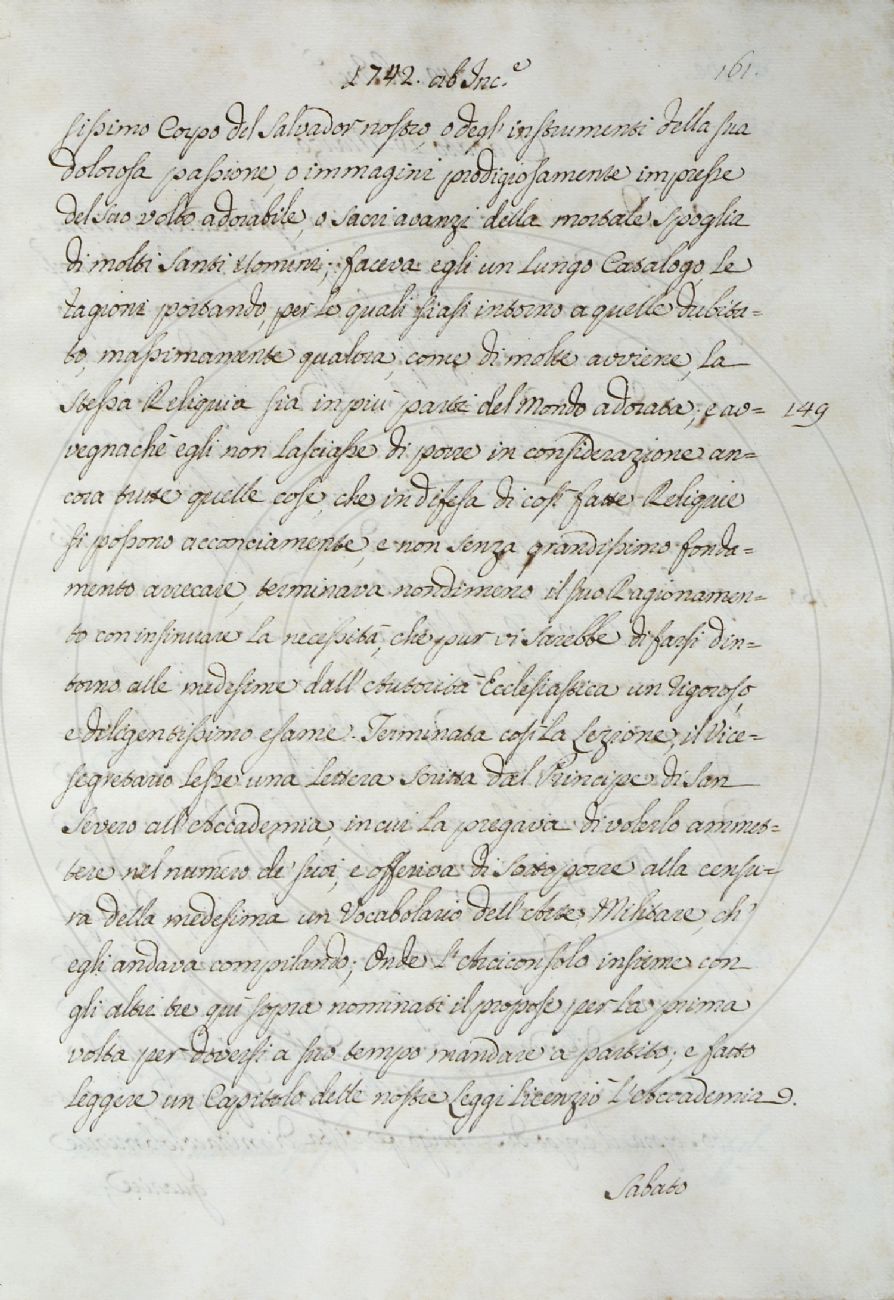 1742. ab Inc.e
161.
sissimo Corpo del Salvador nostro, o degl'instrumenti della sua
dolorosa passione, o immagini prodigiosamente impresse
del suo volto adorabile, o sacri avanzi della mortale spoglia
di molti Santi Uomini; faceva egli un lungo Catalogo, le
ragioni portando, per le quali siasi intorno a quelle dubita=
to, massimamente qualora, come di molte avviene, la
stessa Reliquia sia in più parti del Mondo adorata; e av=
149
vegnachè egli non lasciasse di porre in considerazione an=
cora tutte quelle cose, che in difesa di così fatte Reliquie
si possono acconciamente, e non senza grandissimo fonda=
mento arrecare, terminava nondimeno il suo Ragionamen=
to con insinuare la necessità, che pur vi sarebbe di farsi din=
torno alle medesime dall'Autorità Ecclesiastica un rigoroso,
e diligentissimo esame. Terminata così la Lezione, il Vice=
segretario lesse una lettera scritta dal Principe di San
Severo all'Accademia, in cui la pregava di volerlo ammet=
tere nel numero de' suoi, e offeriva di sottoporre alla censu=
ra della medesima un Vocabolario dell'Arte Militare, ch'
egli andava compilando; Onde l'Arciconsolo insieme con
gli altri tre quì sopra nominati il propose per la prima
volta per doversi a suo tempo mandare a partito; e fatto
leggere un Capitolo delle nostre Leggi licenziò l'Accademia.
Sabato